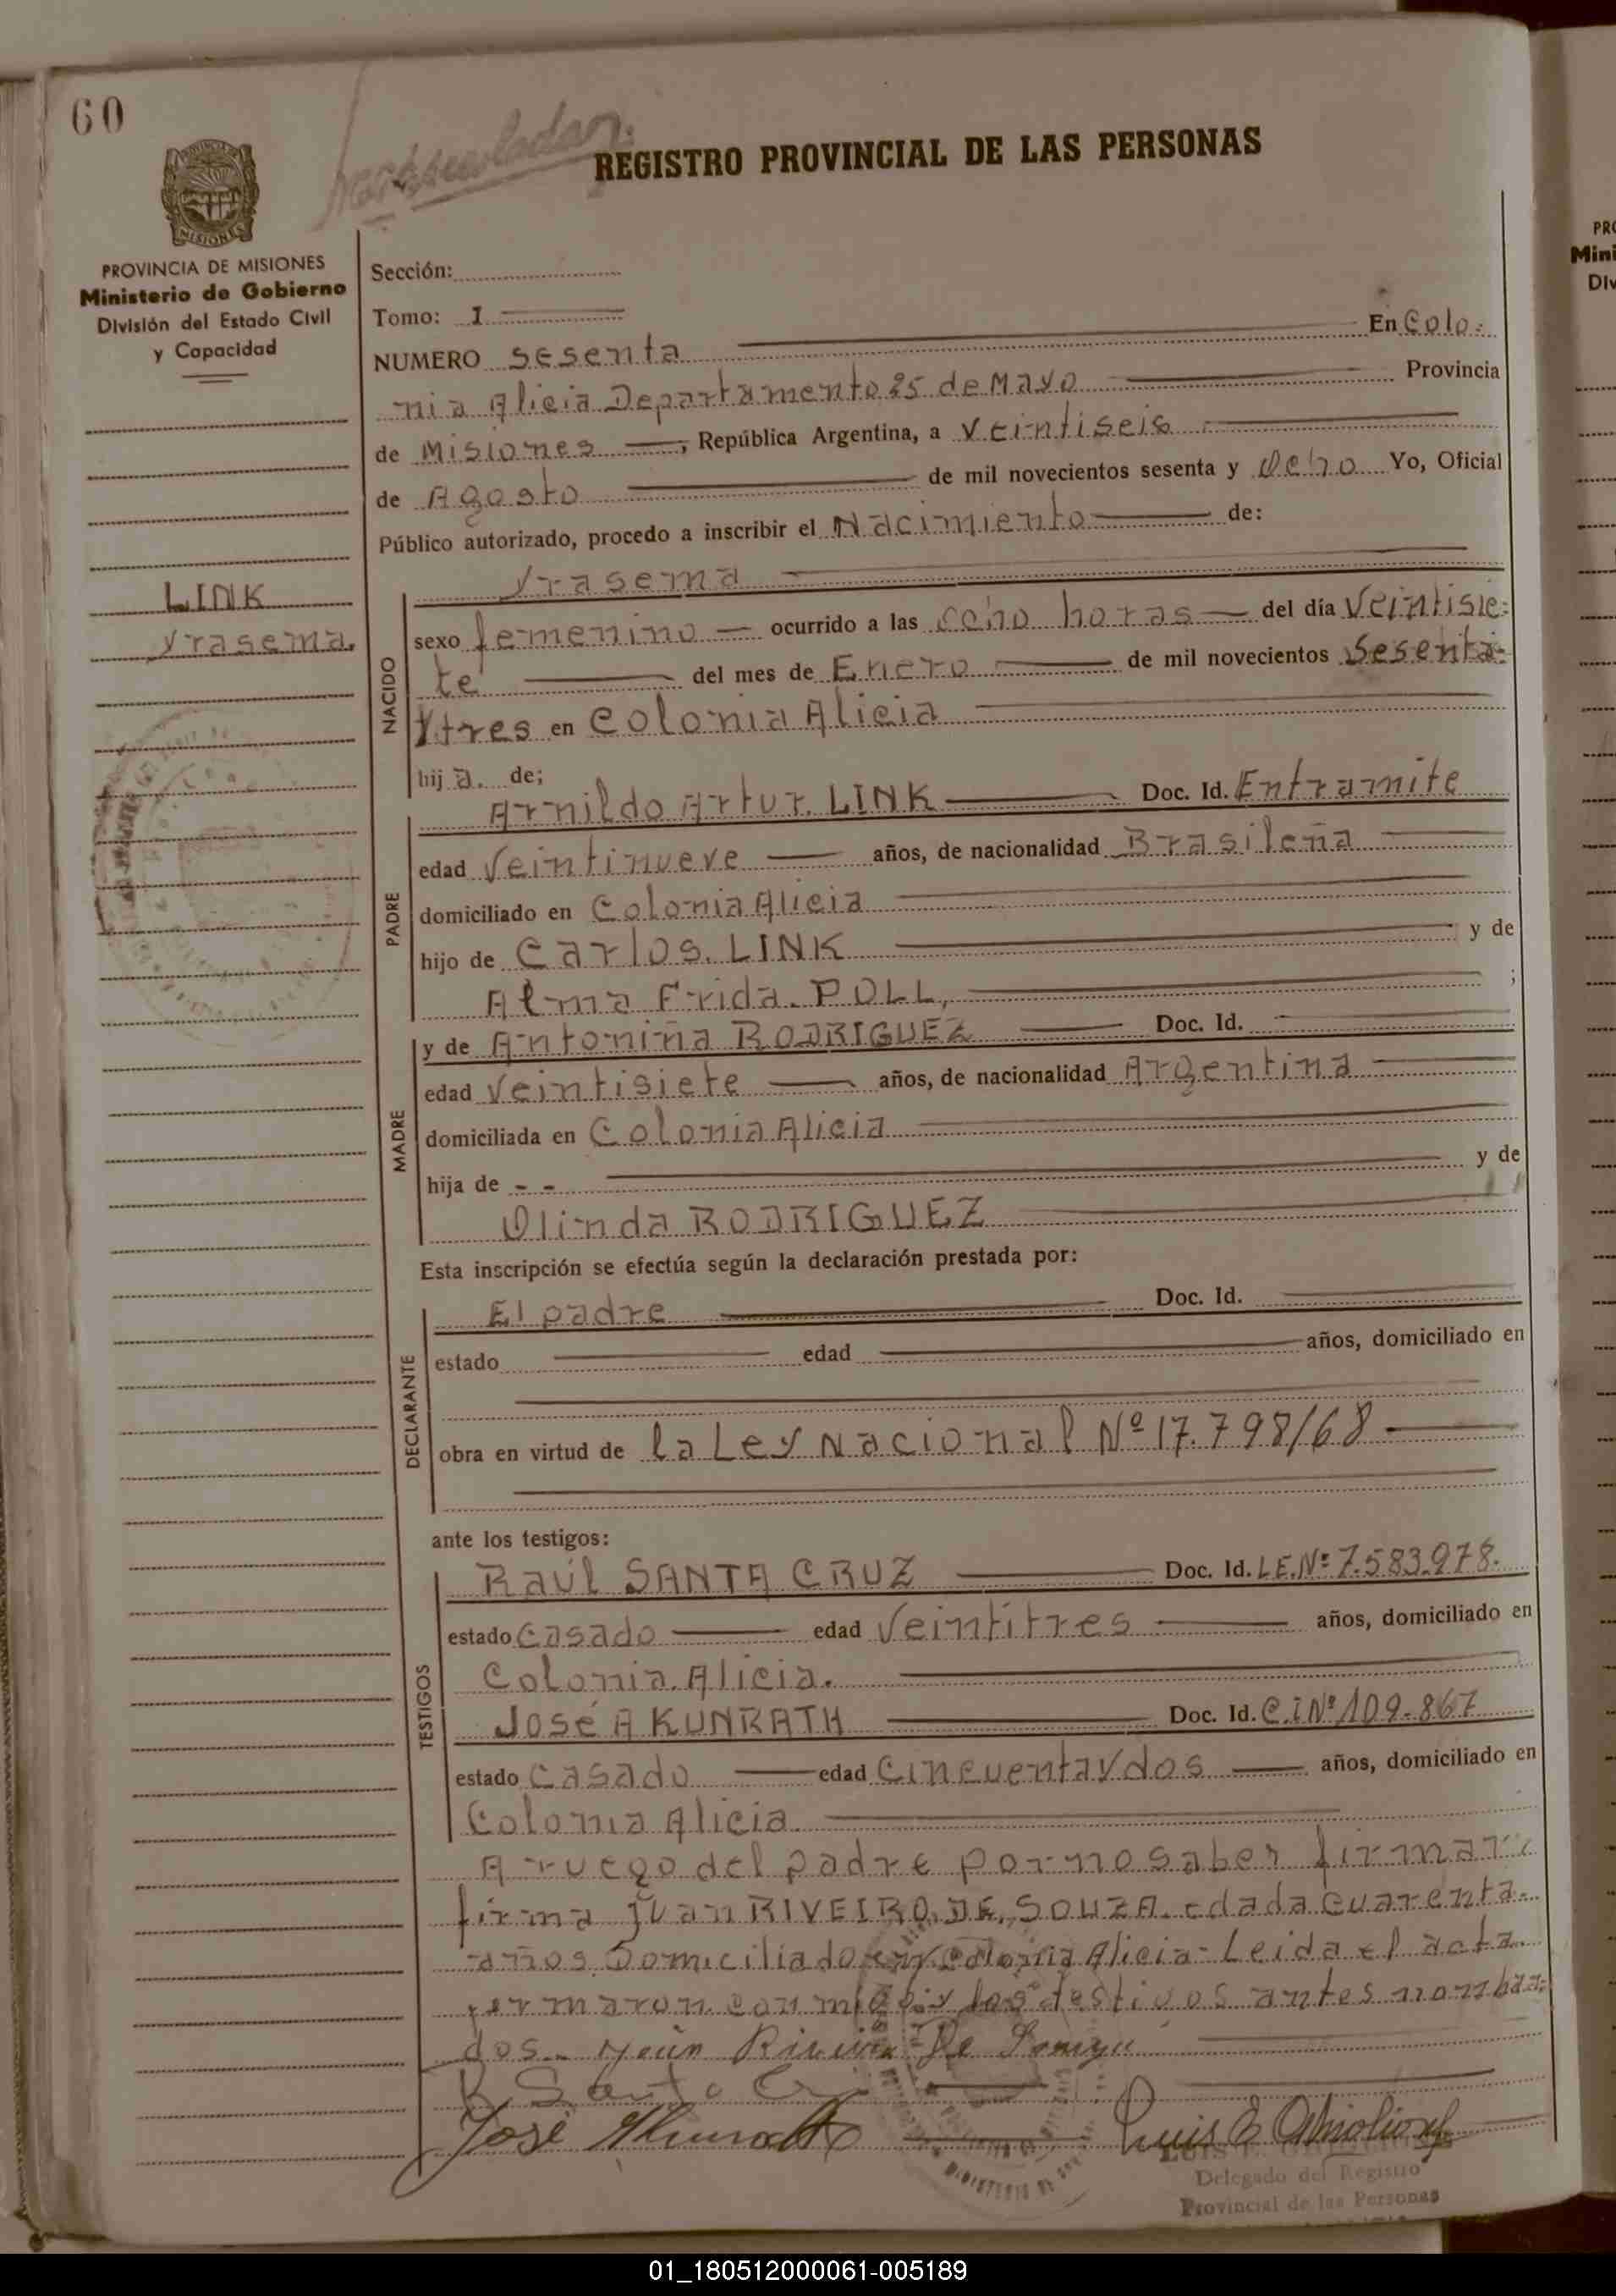 60
REGISTRO PROVINCIAL DE LAS PERSONAS
MISIONES
PROVINCIA DE MISIONES
Ministerio de Gobierno
División del Estado Civil
y Capacidad
LINK
Yrasema.
Sección:
Tomo: 1
NUMERO sesenta En Colo-
nia Alicia Departamento 25 de Mayo Provincia
de Misiones, República Argentina, a veintiseis
de Agosto de mil novecientos sesenta y ocho Yo, Oficial
Público autorizado, procedo a inscribir el Nacimiento de:
Yrasema
NACIDO
sexo femenino ocurrido a las ocho horas del día veintisie-
te del mes de Enero de mil novecientos sesenta-
Ytres en Colonia Alicia
hija. de;
PADRE
Arnildo Artur. LINK Doc. Id. Entramite
edad veintinueve años, de nacionalidad Brasileña
domiciliado en Colonia Alicia
hijo de Carlos. LINK y de
Alma Frida. POLL, ;
MADRE
y de Antoniña RODRIGUEZ Doc. Id.
edad veintisiete años, de nacionalidad Argentina
domiciliada en Colonia Alicia
hija de - - y de
Olinda RODRIGUEZ
Esta inscripción se efectúa según la declaración prestada por:
DECLARANTE
El padre Doc. Id.
estado edad años, domiciliado en
obra en virtud de la Ley Nacional Nº 17.798/68
ante los testigos:
TESTIGOS
Raúl SANTA CRUZ Doc. Id. L.E.Nº 7.583.978.
estado casado edad veintitres años, domiciliado en
Colonia. Alicia.
José A KUNRATH Doc. Id. C.I Nº 109.867
estado casado edad cincuentaydos años, domiciliado en
Colonia Alicia.
A ruego del padre por no saber firmar
firma Juan RIVEIRO. DE. SOUZA. edada cuarenta-
años Domiciliado en Colonia Alicia- Leida el acta.
firmaron conmigo y los testigos antes nombra-
dos-
José
Luis E
Delegado del Registro
Provincial de las Personas
PRO
Mini
Div
01_180512000061-005189